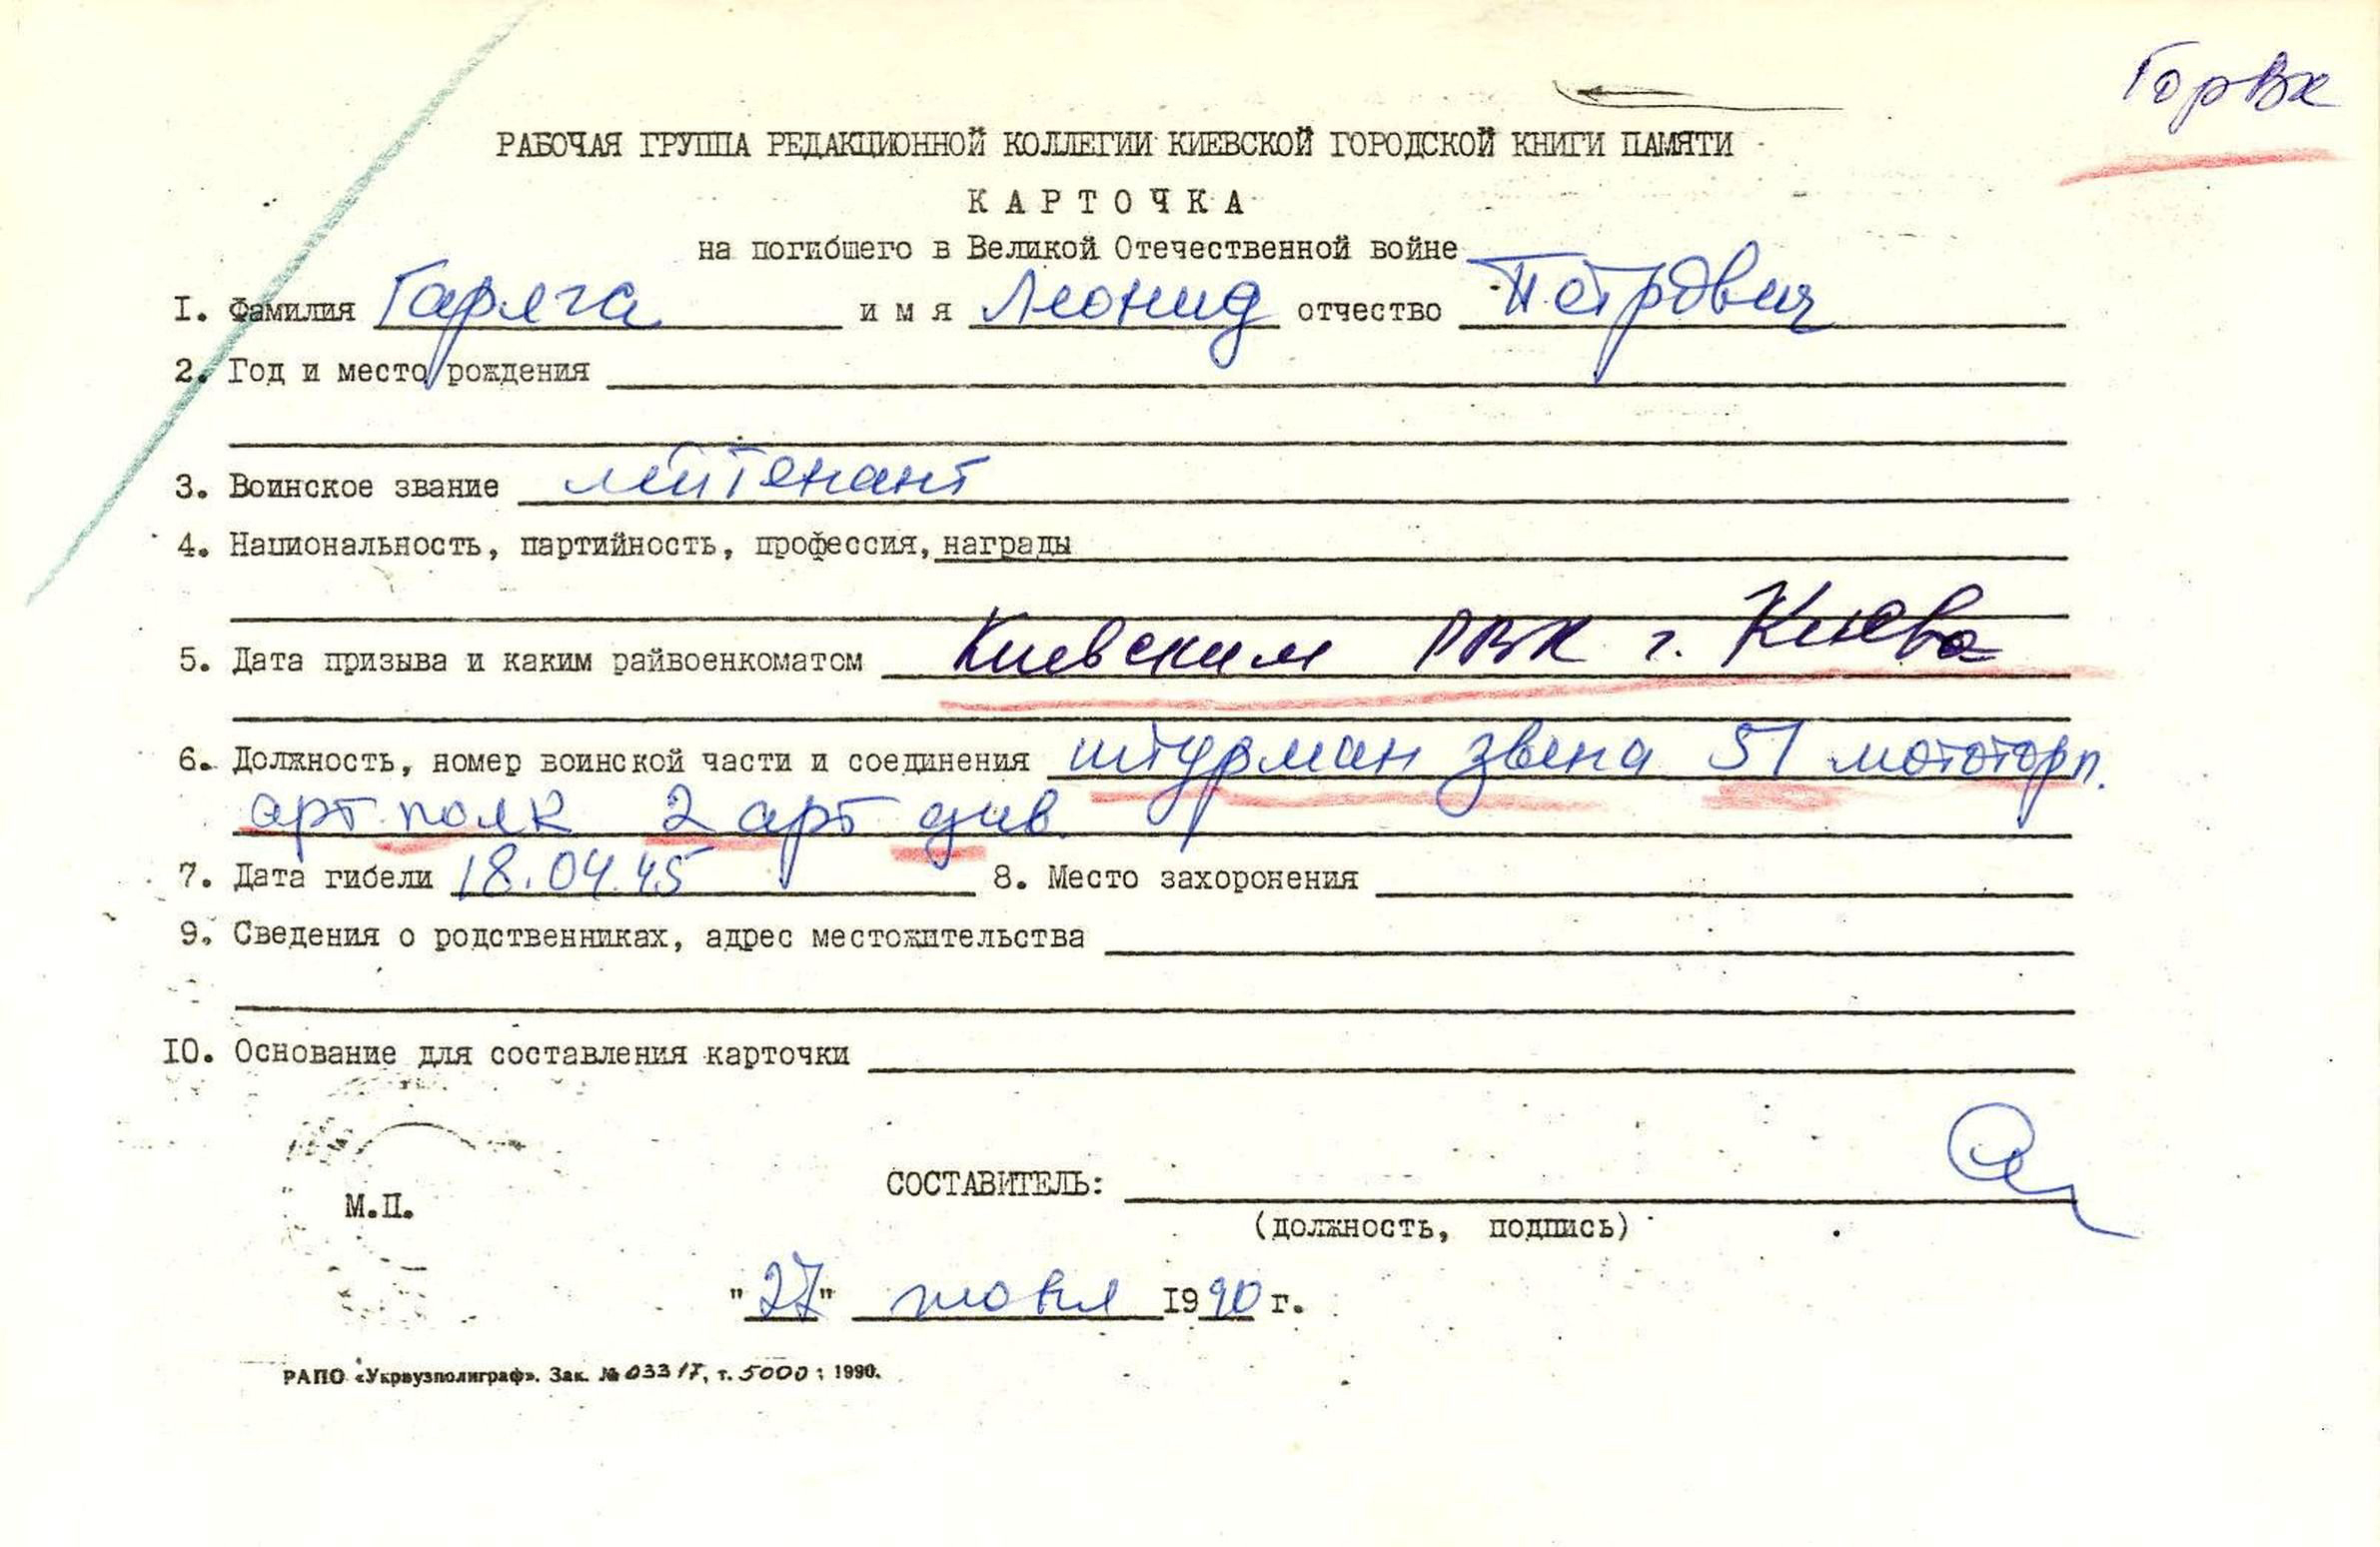 ГорВк
РАБОЧАЯ ГРУППА РЕДАКЦИОННОЙ КОЛЛЕГИИ КИЕВСКОЙ ГОРОДСКОЙ КНИГИ ПАМЯТИ
КАРТОЧКА
на погибшего в Великой Отечественной войне
1. Фамилия Гаряга имя Леонид отчество Петрович
2. Год и место рождения
3. Воинское звание лейтенант
4. Национальность, партийность, профессия, награды
5. Дата призыва и каким райвоенкоматом Киевским РВК г. Киева
6. Должность, номер воинской части и соединения штурман звена 51 мототорп.
арт. полк 2 арт див.
7. Дата гибели 18.04.45 8. Место захоронения
9. Сведения о родственниках, адрес местожительства
10. Основание для составления карточки
СОСТАВИТЕЛЬ:
М.П.
(должность, подпись)
"27" июля 1990 г.
РАПО «Укрвузполиграф». Зак. № 03317, т. 5000; 1990.